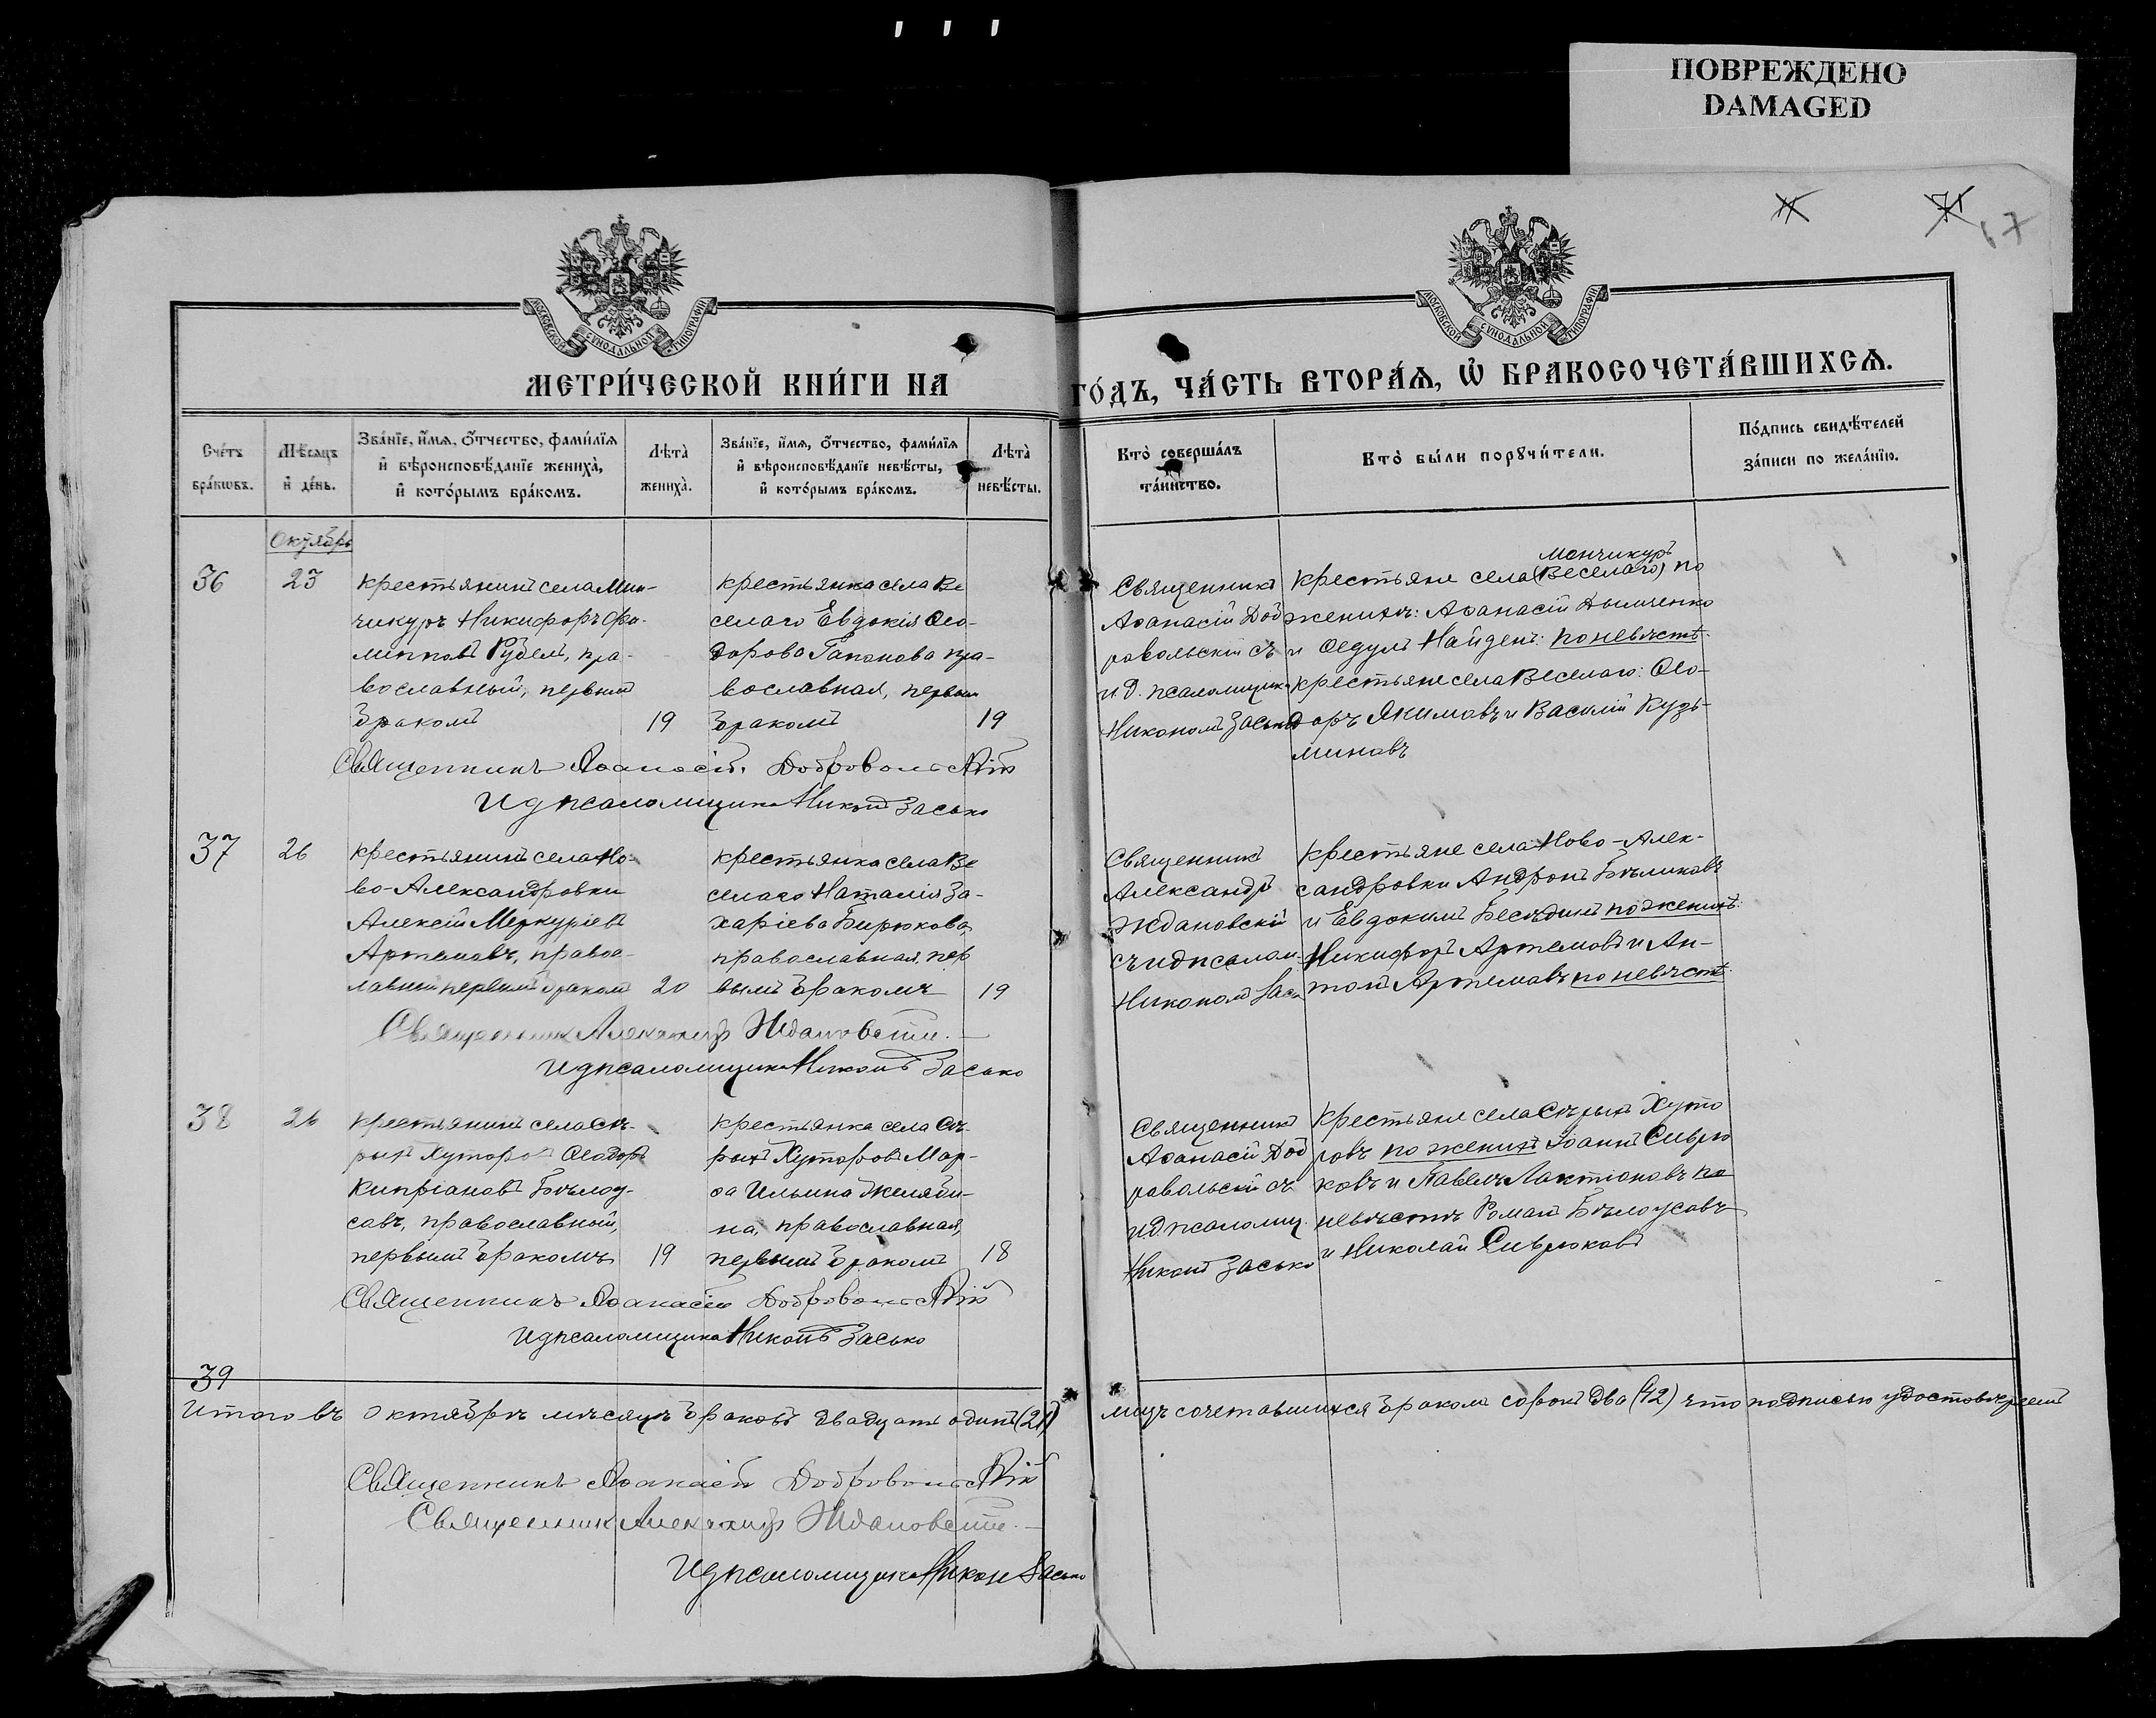 ПОВРЕЖДЕНО
DAMAGED
71
67
МОСКОВСКОЙ СѴНОДАЛЬНОЙ ТИПОГРАФІИ
МОСКОВСКОЙ СѴНОДАЛЬНОЙ ТИПОГРАФІИ
МЕТРИ́ЧЕСКОЙ КНИ́ГИ НА
ГО́ДЪ, ЧА́СТЬ ВТОРА́Ѧ, Ѽ БРАКОСОЧЕТА́ВШИХСѦ.
Сче́тъ
бра́кωвъ.
Мѣ́сѧцъ
и҆ де́нь.
Зва́нїе, и҆́мѧ, ѻ҆́тчество, фами́лїѧ
и҆ вѣроисповѣ́данїе жениха̀,
и҆ кото́рымъ бра́комъ.
Лѣта̀
жениха̀.
Зва́нїе, и҆́мѧ, ѻ҆́тчество, фами́лїѧ
и҆ вѣроисповѣ́данїе невѣ́сты,
и҆ кото́рымъ бра́комъ.
Лѣта̀
невѣ́сты.
Кто̀ соверша́лъ
та́инство.
Кто̀ бы́ли порꙋчи́тели.
По́дпись свидѣ́телей
за́писи по жела́нїю.
Октябрь
36
23
крестьянинъ села Мин-
чикуръ Никифоръ Фи-
липповъ Рубель, пра-
вославный, первымъ
бракомъ
19
крестьянка села Ве
селаго Евдокія Ѳео-
дорова Гапонова пра-
вославная, первым
бракомъ
19
Священникъ
Аѳанасій Доб
ровольскій съ
и.д. псаломщика
Никономъ Засько
менчикуръ
крестьяне села (Веселаго) по
женихѣ: Аѳанасій Дымченко
и Ѳедулъ Найденъ: по невѣстѣ
крестьяне села Веселаго: Ѳео-
доръ Якимовъ и Василій Кузь-
миновъ
Священникъ Аѳанасій Добровольскій
И д псаломщика Никонъ Засько
37
26
крестьянинъ села Но-
во-Александровки
Алексій Меркуріевъ
Артемовъ, правос-
лавный первымъ бракомъ
20
крестьянка села Ве
селаго Наталія За-
харіева Бирюкова,
православная, пер
вымъ бракомъ
19
Священникъ
Александръ
Ждановскій
съ и д псалом-
Никономъ Зась
крестьяне села Ново-Алек-
сандровки Андрей Бѣликовъ
и Евдокимъ Бесѣдинъ по женихѣ:
Никифоръ Артемовъ и Ан-
тонъ Артемовъ по невѣстѣ
Священник Александръ Ждановскій.
И д псаломщика Никонъ Засько
38
26
крестьянинъ села Сѣ-
рыхъ Хуторовъ Ѳеодоръ
Кипріановъ Бѣлоу-
совъ, православный,
первымъ бракомъ
19
крестьянка села Сѣ-
рыхъ Хуторовъ Мар-
ѳа Ильина Желяби-
на, православная,
первымъ бракомъ
18
Священникъ
Аѳанасій Доб
ровольскій съ
и.д. псаломщ.
Никонъ Засько
Крестьяне села Сѣрыхъ Хуто
ровъ по женихѣ Іоаннъ Сиврю
ковъ и Павелъ Лактіоновъ по
невѣстѣ Романъ Бѣлоусовъ
и Николай Сиврюковъ
Священникъ Аѳанасій Добровольскій
И д псаломщика Никонъ Засько
39
Итого въ октябрѣ мѣсяцѣ браковъ двадцать одинъ (21)
лицъ сочетавшихся бракомъ сорокъ два (42) что подписью удостовѣряемъ
Священникъ Аѳанасій Добровольскій
Священник Александръ Ждановскій.
И д псаломщика Никон Засько